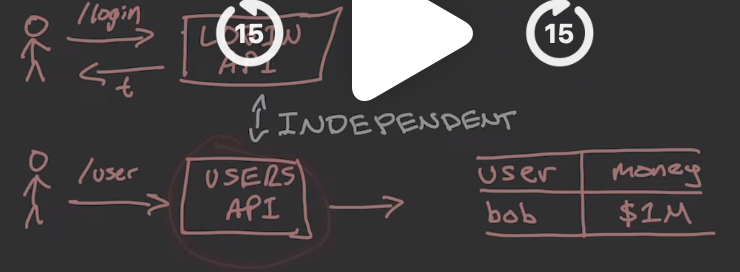 /login
15
15
LOGIN
API
t
INDEPENDENT
/user
USERS
API
user money
bob $1M